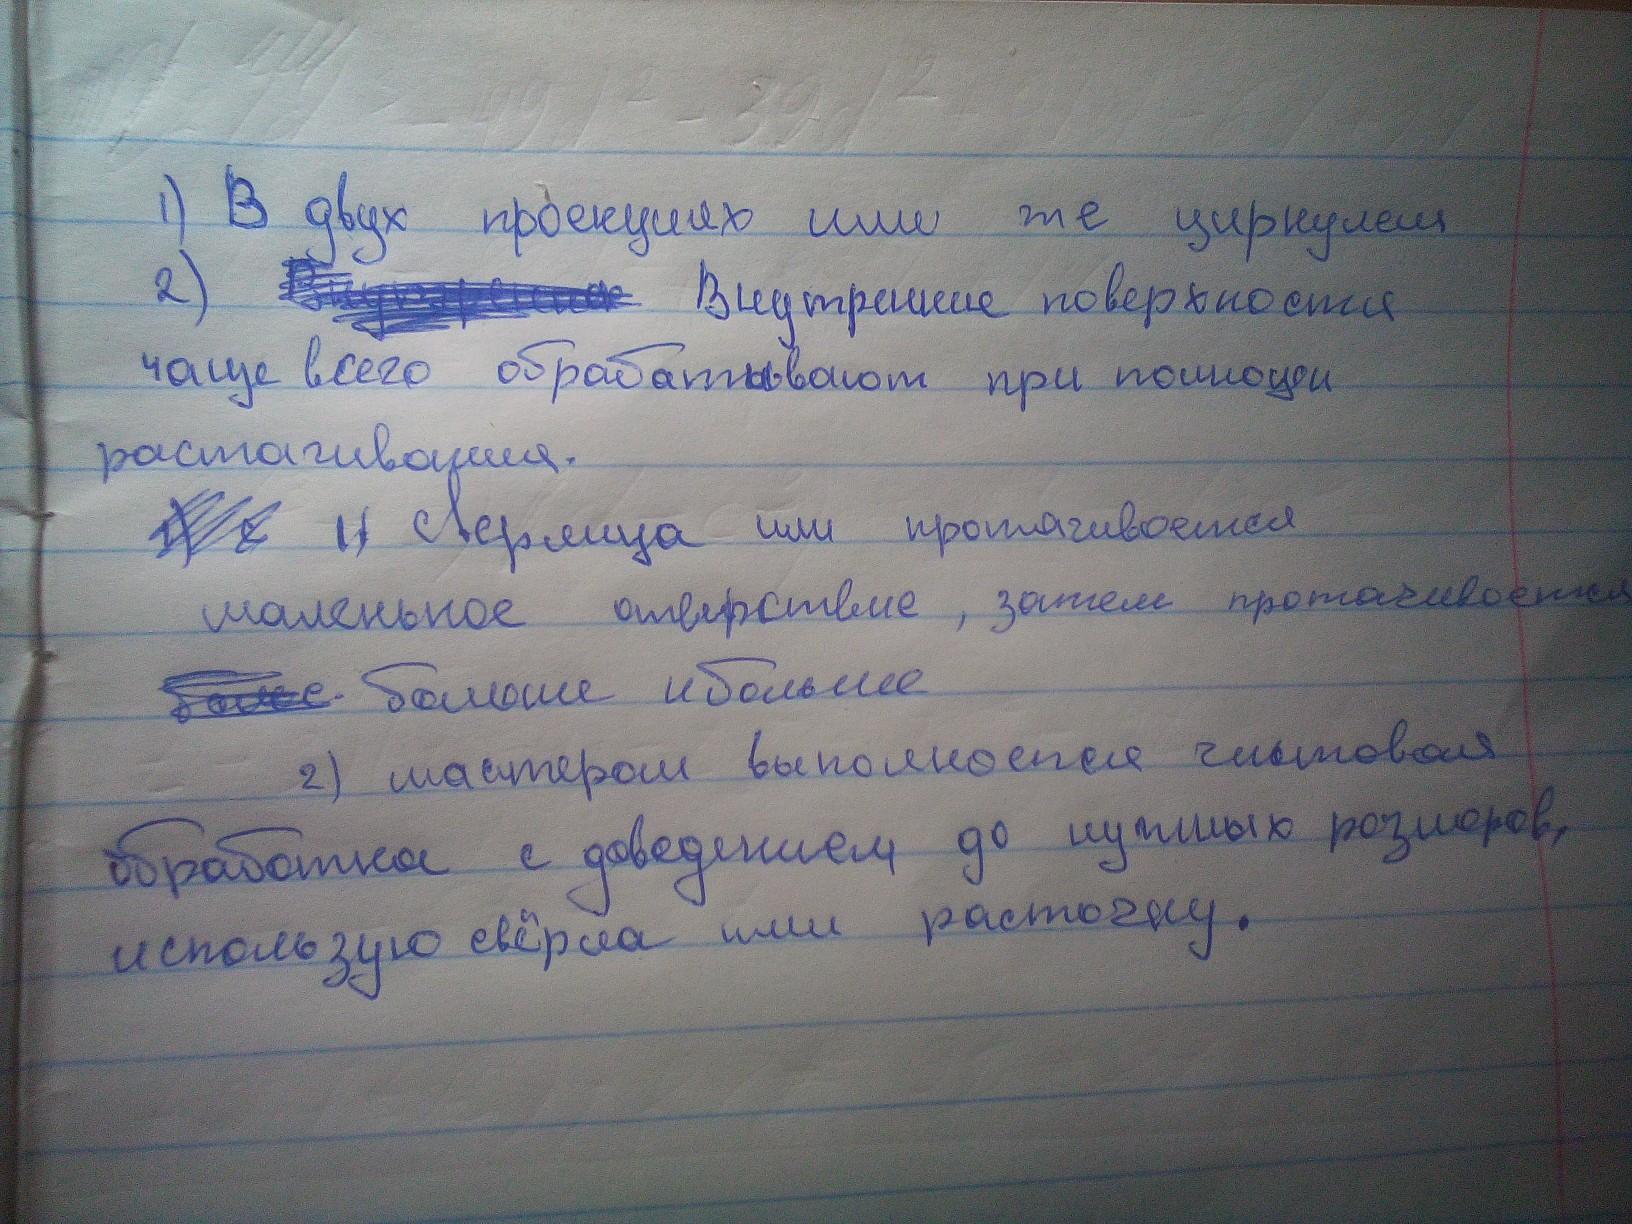 1) В двух проекциях или же циркулем
2) Внутренние поверхности
чаще всего обрабатывают при помощи
растагивания.
1) Сверлица или протачивается
маленькое отверствие, затем протачивается
больше и больше
2) мастером выполняется чистовая
обработка с доведением до нужных розмеров,
использую свёрла или расточку.